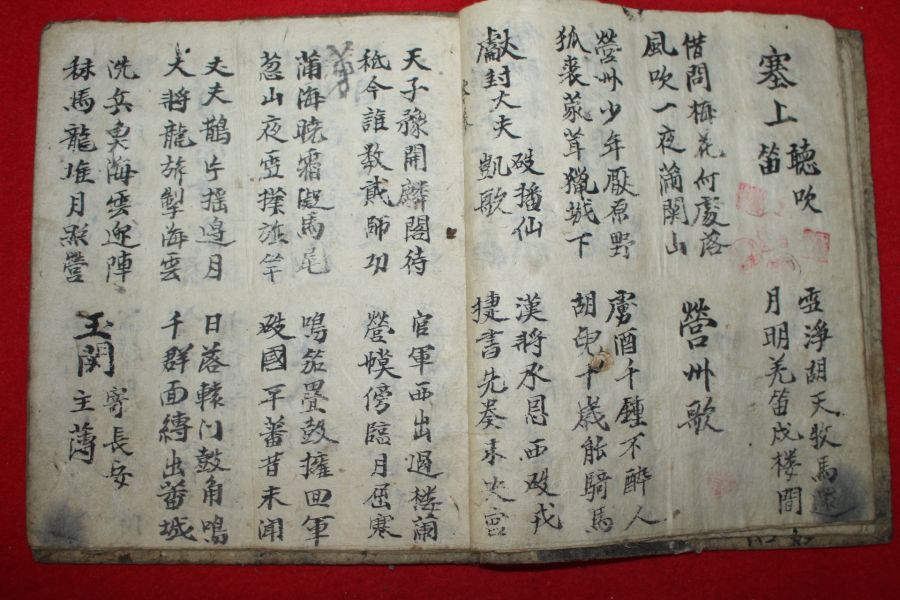 塞上聽吹笛
雪淨胡天牧馬還
月明羌笛戍楼間
借問梅花何處落
風吹一夜滿関山
營州歌
營州少年厭原野
狐裘蒙茸獵城下
虜酒千鍾不醉人
胡兒十歲能騎馬
獻封大夫破播仙凱歌
漢將承恩西破戎
捷書先奏未央宮
天子豫開麟閣待
秪今誰数貳師功
官軍西出過楼蘭
營幙傍臨月屈寒
蒲海曉霜凝馬尾
葱山夜雪撲旗竿
鳴笳疊鼓擁囬軍
破國平蕃昔未聞
丈夫鵲片搖邊月
大將龍旂掣海雲
日落轅门鼓角鳴
千群面縛出蕃城
洗兵魚海雲迎陣
秣馬龍堆月照營
玉関寄長安主薄